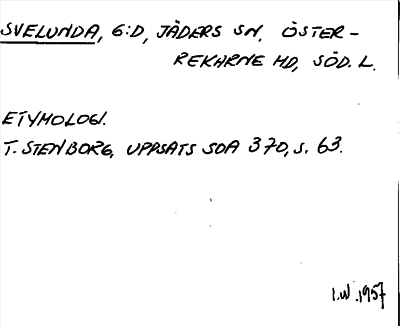 SVELUNDA, G:D, JÄDERS SN, ÖSTER-
REKARNE HD, SÖD. L.
ETYMOLOGI.
T. STENBORG, UPPSATS SOA 370, S. 63.
I.W. 1957